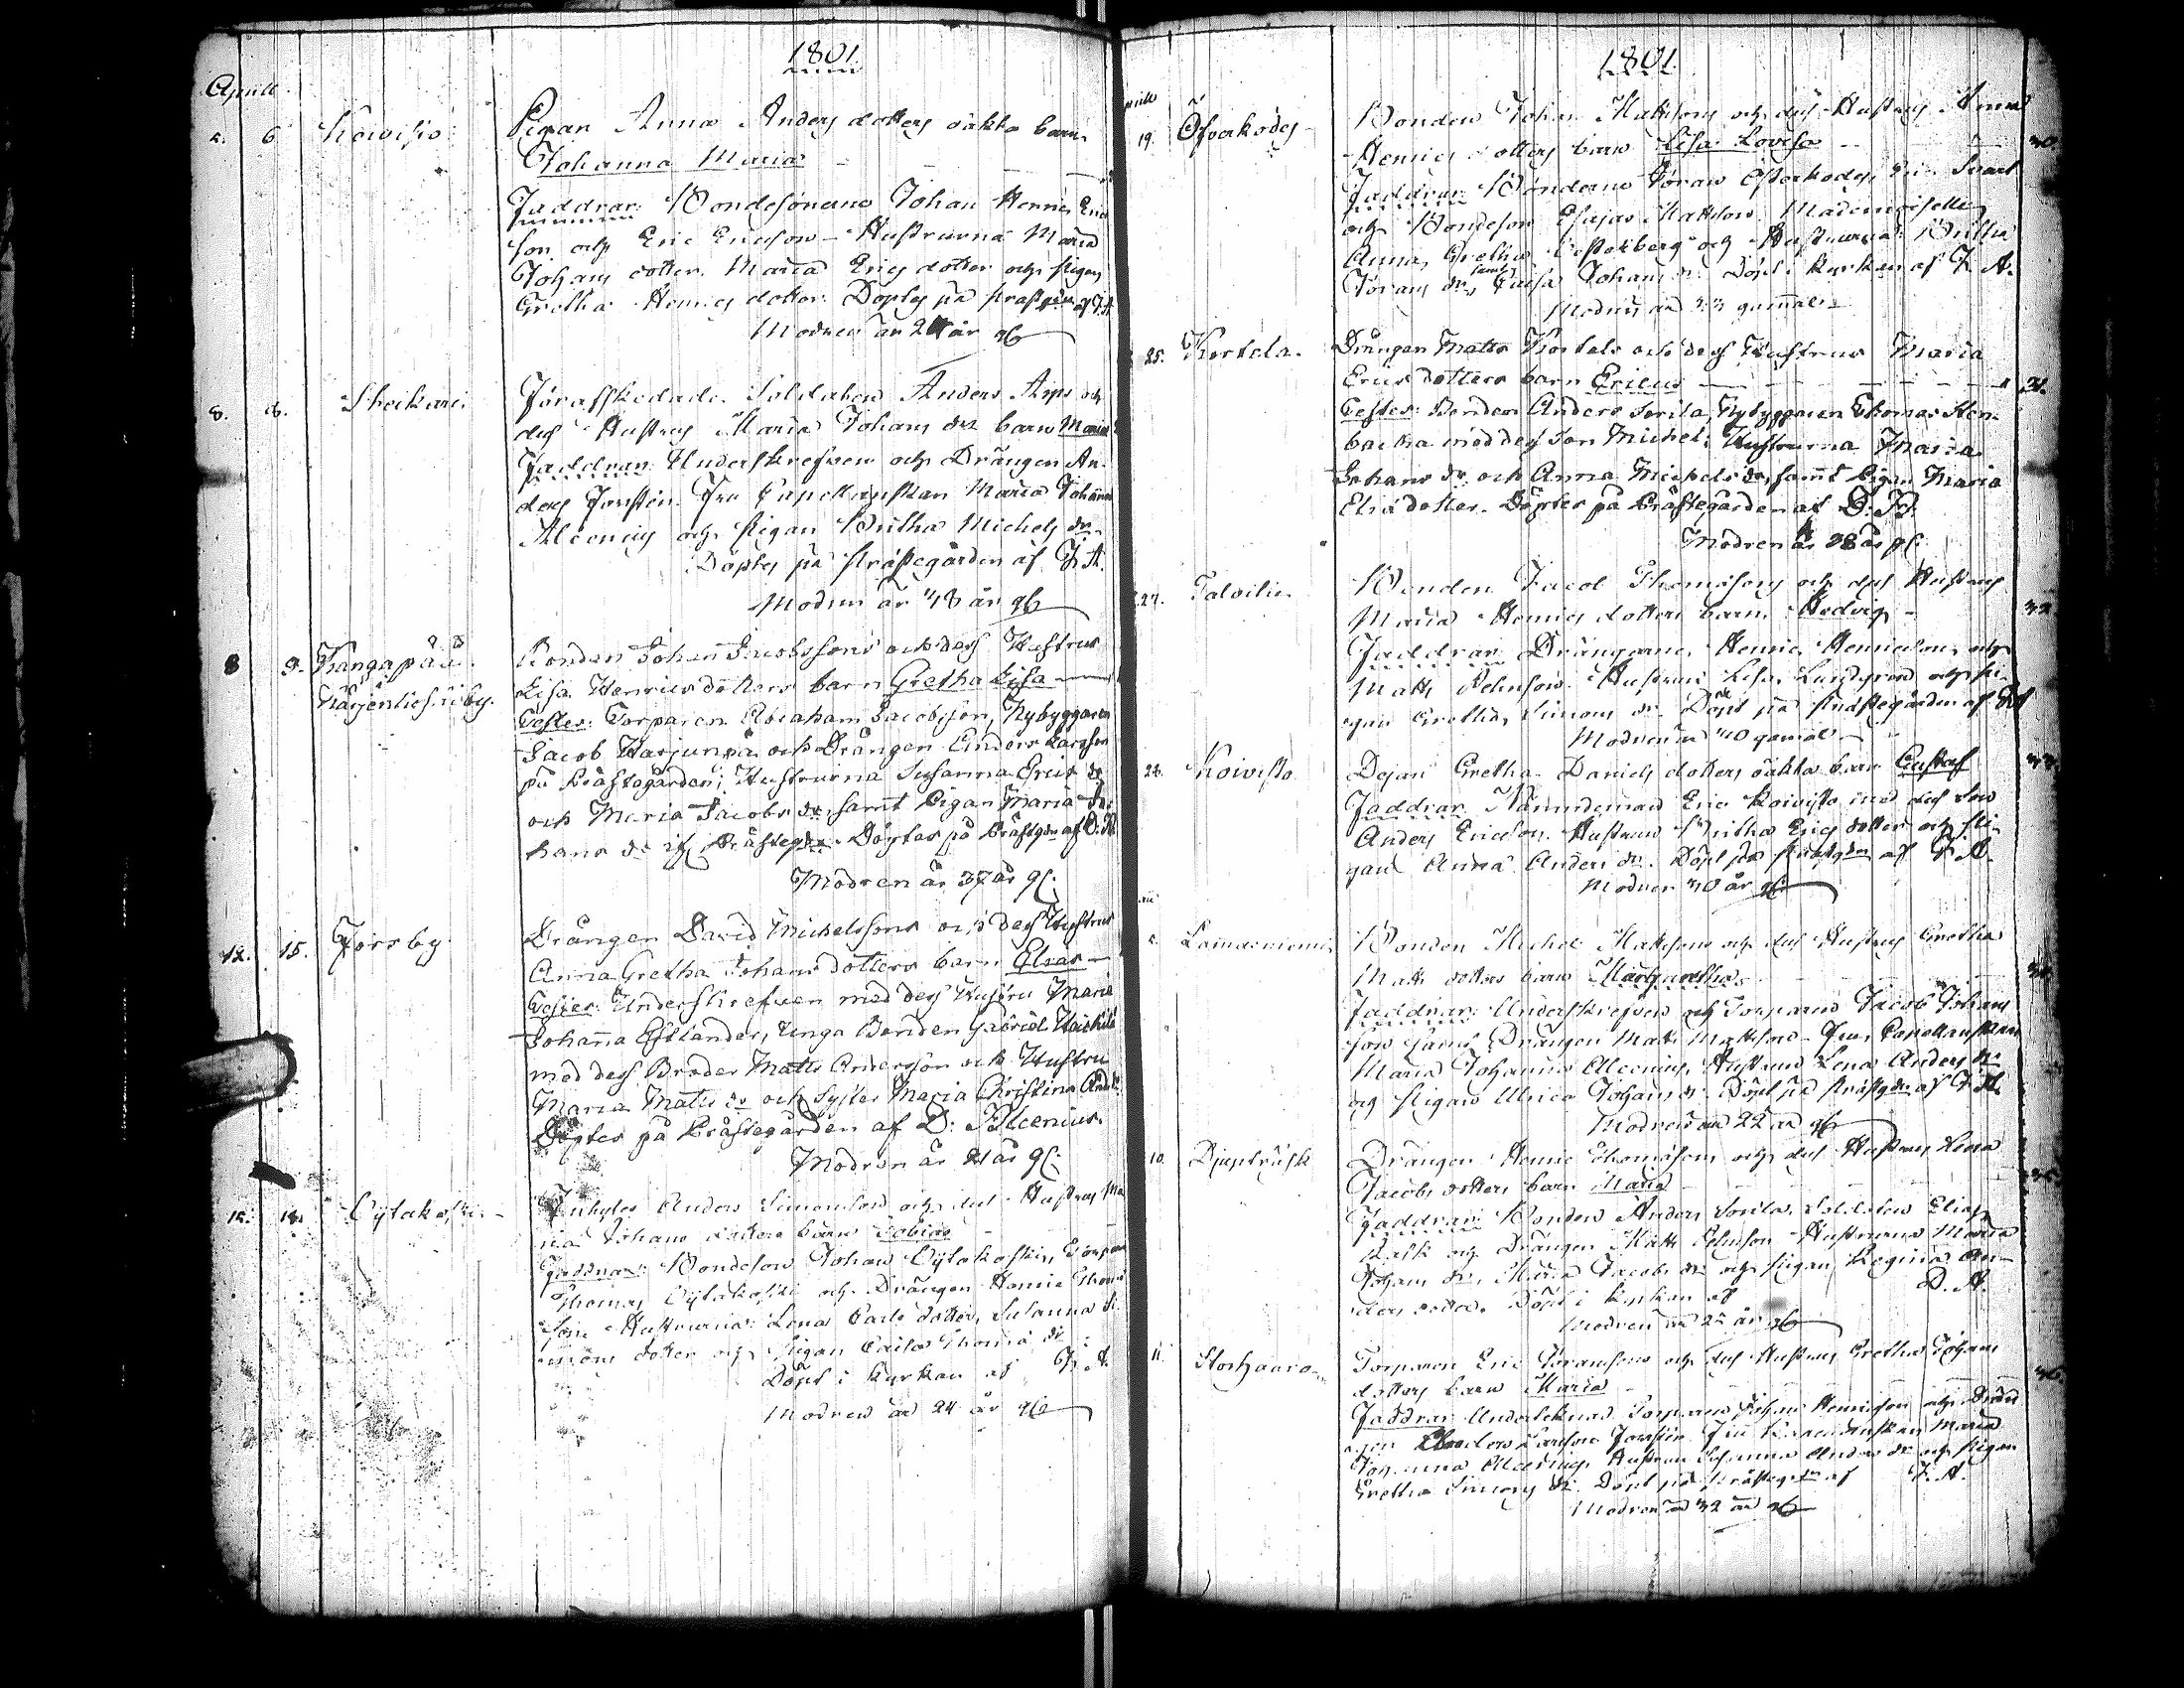 1801
April
5. 6 Koivisto Pigan Anna Anders dotters oäkta barn
Johanna Maria
Faddrar: Bondesönerne Johan Henric Eric
son och Eric Ericson - Hustrurna Maria
Johans dotter. Maria Erics dotter och Pigan
Gretha Henrics dotter. Döptes på Prästgdn af J. A.
Modren är 24 år
8. 8. Förafskedade Soldaten Anders Arps och
des Hustrus Maria Johans dr barn Maria
Faddrar: Underskrefven och Drängen An-
ders Forssén. Fru Capellanskan Maria Johanna
Alcenius och Pigan Britha Michels dr
Döptes på Prästegården af J. A.
Modren är 43 år
8 9. Kangapää. Bonden Johan Jacobssons och dess Hustrus
Lisa Henricsdotters barn Gretha Lisa
Testes: Torparen Abraham Jacobsson, Nybyggaren
Jacob Harjunpä och Drängen Anders Larsson
på Prästegården; Hustrurna Susanna Erics dr
och Maria Jacobs dr samt Pigan Maria Jo-
hans dr if. Prästegdn. Döptes på Prästgdn af D. A.
Modren är 37 år gl.
12. 15. Forsby Drängen David Michelssons och dess Hustrus
Anna Gretha Johansdotters barn Elias
Testes: Underskrefven med dess Hustru Maria
Johanna Estlander, Unga Bonden Gabriel
med dess Broder Matts Andersson och Hustru
Maria Matts dr och Syster Maria Christina Anders dr
Döptes på Prästegården af D: Alcenius.
Modren är 21 år gl.
15. 18. Cylakoski Inhyses Anders Simonsons och des Hustrus Ma
ria Johans dotters barn Tobias
Faddrar: Bondeson Johan Cylakoski, Torparen
Thomas Cylakoski och Drängen Henric Thomas
son Hustrurna: Lena Carls dotter, Susanna Si-
mons dotter och Pigan Caisa Thomas dr
Döpt i Kyrkan af J. A.
Modren är 24 år
1801
April
19. Öfverkodes Bonden Johan Mattsons och des Hustrus Anna
Henrics dotters barn Lisa Lovisa 30.
Faddrar: Bönderne Jöran Österkodes
och Bondeson Esaias Mattson. Mademoiselle
Anna Gretha och Hustrurna: Britha
Jörans dr, samt Caisa Johans dr. Döpt i Kyrkan af J. A.
Modren är 33 gammal
25. Kortela. Drängen Matts Kortela och dess Hustrus Maria
Ericsdotters barn Ericus 31.
Testes: Bonden Anders Sorila, Nybyggaren Thomas Sten-
backa med dess son Michel; Hustrurna Maria
Johans dr. och Anna Michels dr, samt Pigan Maria
Eliædotter. Döptes på Prästegården af D. A.
Modren är 38 år gl.
27. Talvitie Bonden Jacob Thomasons och des Hustrus
Maria Henrics dotters barn Hedvig 32.
Faddrar: Drängarne Henric Henricson och
Matts Hustrun Lisa Lundgren och Pi-
gan Gretha Simons dr. Döpt på Prästegården af J. A.
Modren är 40 gammal
28. Koivisto Dejan Gretha Daniels dotters oäkta barn Gustaf 33.
Faddrar: Nämndeman Eric Koivisto med des son
Anders Ericson. Hustrun Britha Erics dotter och Pi-
gan Anna Anders dr. Döpt på Prästgdn af J. A.
Modren 40 år
Bonden Michel Mattsons och des Hustrus Gretha
Matts dotters barn Margaretha 34.
Faddrar: Underskrefven och Torparen Jacob Johans
son samt Drängen Matts Mattson. Fru Capellanskan
Maria Johanna Alcenius, Hustrun Lena Anders dr
och Pigan Ulrica Johans dr. Döpt på Prästgdn af J. A.
Modren är 22 år
10. Djupträsk Drängen Henric Thomasons och des Hustrus Lena
Jacobs dotters barn Maria 35.
Faddrar: Bonden Anders Sorila. Soldaten Elias
och Drängen Matts Hustrurna Maria
Johans dr, Maria Jacobs dr och Pigan Regina An-
ders dotter. Döpt i Kyrkan af D. A.
Modren är 22 år
11. Torparen Eric Göransons och des Hustrus Gretha Johans
dotters barn Maria 36.
Faddrar: Undertecknad. Torparen Johan Henricson och Drän
gen Anders Larsson Forssén. Fru Capellanskan Maria
Johanna Alcenius, Hustrun Susanna Anders dr och Pigan
Gretha Simons dr. Döpt på Prästegdn af J. A.
Modren är 32 år